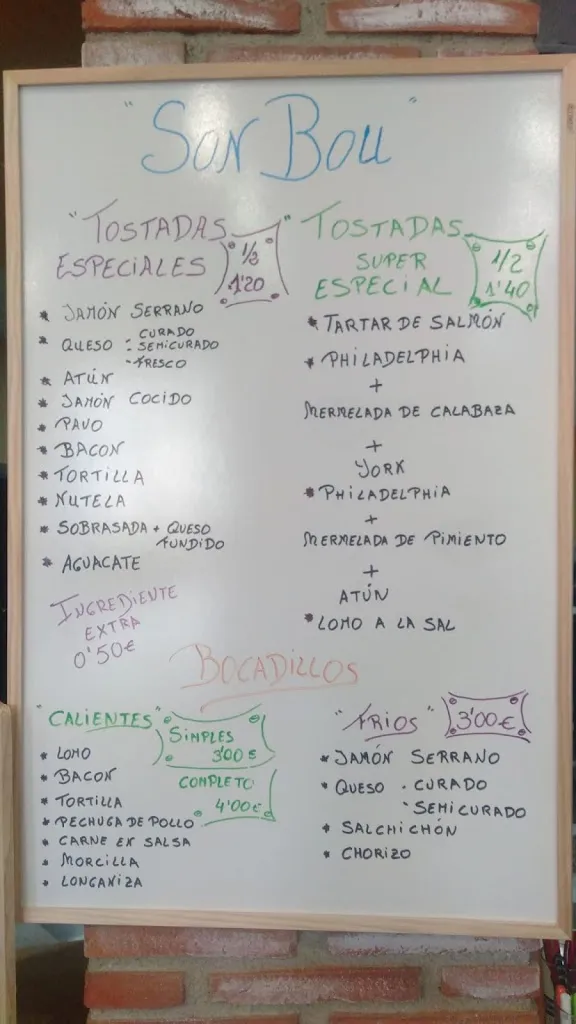 "SON BOU"
"TOSTADAS ESPECIALES"
1/2
1'20
* JAMÓN SERRANO
* QUESO : CURADO
- SEMICURADO
- FRESCO
* ATÚN
* JAMÓN COCIDO
* PAVO
* BACON
* TORTILLA
* NUTELA
* SOBRASADA + QUESO
FUNDIDO
* AGUACATE
INGREDIENTE
EXTRA
0'50€
TOSTADAS
SUPER
ESPECIAL
1/2
1'40
* TARTAR DE SALMÓN
* PHILADELPHIA
+
MERMELADA DE CALABAZA
+
YORK
* PHILADELPHIA
+
MERMELADA DE PIMIENTO
+
ATÚN
* LOMO A LA SAL
BOCADILLOS
"CALIENTES"
SIMPLES
3'00€
COMPLETO
4'00€
* LOMO
* BACON
* TORTILLA
* PECHUGA DE POLLO
* CARNE EN SALSA
* MORCILLA
* LONGANIZA
"FRIOS"
3'00€
* JAMÓN SERRANO
* QUESO · CURADO
· SEMICURADO
* SALCHICHÓN
* CHORIZO